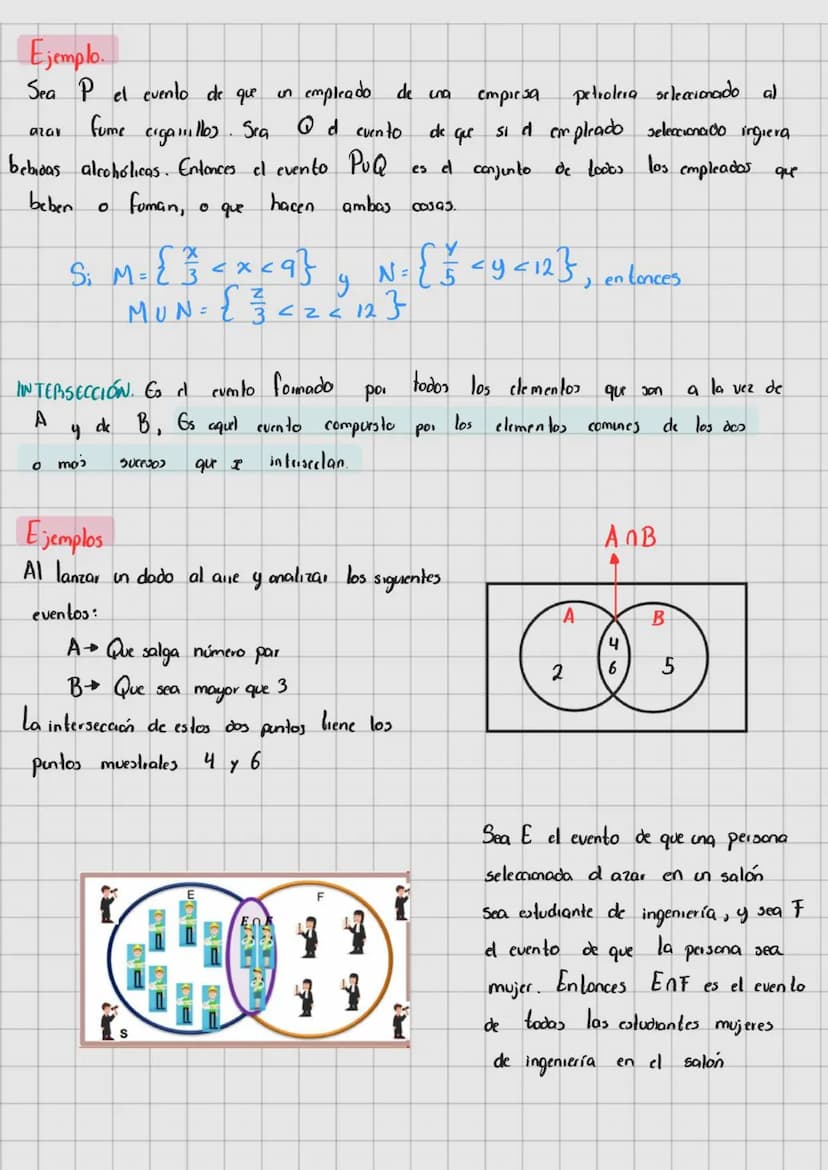 Ejemplo.
Sea P el evento de que un empleado de una empresa petrolera seleccionado al
azar fume cigarrillos. Sea Q el evento de que si el empleado seleccionado ingiera
bebidas alcohólicas. Entonces el evento PUQ es el conjunto de todos los empleados que
beben o fuman, o que hacen ambas cosas.
Si M = { x/3 < x < 9 } y N = { y/5 < y < 12 }, entonces
M U N = { z/3 < z < 12 }
INTERSECCIÓN. Es el evento formado por todos los elementos que son a la vez de
A y de B, Es aquel evento compuesto por los elementos comunes de los dos
o más sucesos que se intersectan.
Ejemplos
Al lanzar un dado al aire y analizar los siguientes
eventos:
A→ Que salga número par
B→ Que sea mayor que 3
La intersección de estos dos puntos tiene los
puntos muestrales 4 y 6
A ∩ B
A B
4
2 6 5
E F
E ∩ F
S
Sea E el evento de que una persona
seleccionada al azar en un salón
sea estudiante de ingeniería, y sea F
el evento de que la persona sea
mujer. Entonces E∩F es el evento
de todas las estudiantes mujeres
de ingeniería en el salón